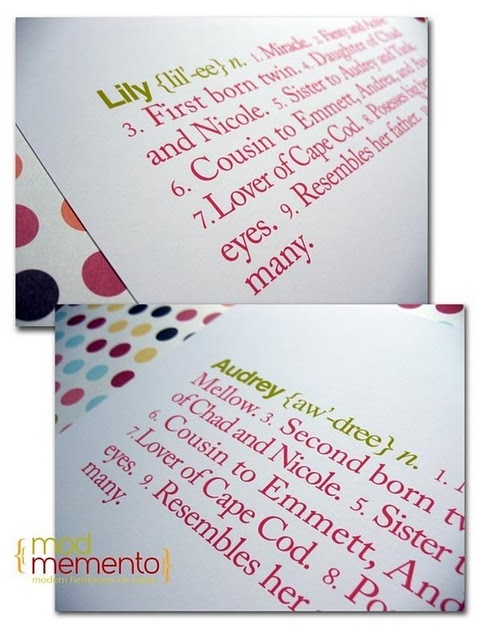 Lily {lil'-ee} n. 1. Miracle. 2. Feisty and Active
3. First born twin. 4. Daughter of Chad
and Nicole. 5. Sister to Audrey and
6. Cousin to Emmett, Andrea, and
7. Lover of Cape Cod. 8. Posesses big
eyes. 9. Resembles her father.
many.
Audrey {aw'-dree} n. 1.
Mellow. 3. Second born
of Chad and Nicole. 5. Sister
6. Cousin to Emmett, And
7. Lover of Cape Cod. 8. Po
eyes. 9. Resembles her
many.
{mod
memento}
modern heirlooms on paper